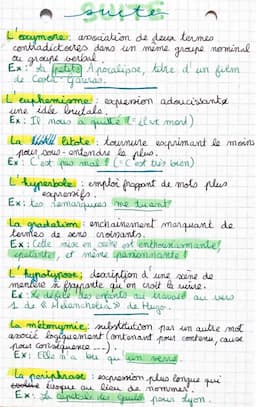 suite
L'oxymore: association de deux termes
contradictoires dans un même groupe nominal
ou groupe verbal.
Ex: La petite Apocalipse, titre d'un film
de Costa-Gavras.
L'euphemisme: expression adoucissante
une idée brutale.
Ex: Il nous a quitté (= il est mort)
La litote: tournure exprimant le moins
pour sous-entendre le plus.
Ex: C'est pas mal! (= C'est très bien)
L'hyperbole: emploi frappant de mots plus
expressifs.
Ex: tes remarques me tuent
La gradation: enchainement marquant de
termes de sens croissants.
Ex: Celle mise en scène est enthousiasmante!
épatante, et même passionnante!
L'hypotypose: description d'une scène de
manière si frappante qu'on croit la vivre.
Ex: le défilé des enfants au travail au vers
1 de « Melancholia » de Hugo.
La métonymie: substitution par un autre mot
associé logiquement (contenant pour contenu, cause
pour conséquence ...).
Ex: Elle n'a bu qu'un verre
La periphrase: expression plus longue qui
évoque au lieu de nommer.
Ex: La capitale des Gaules pour Lyon.